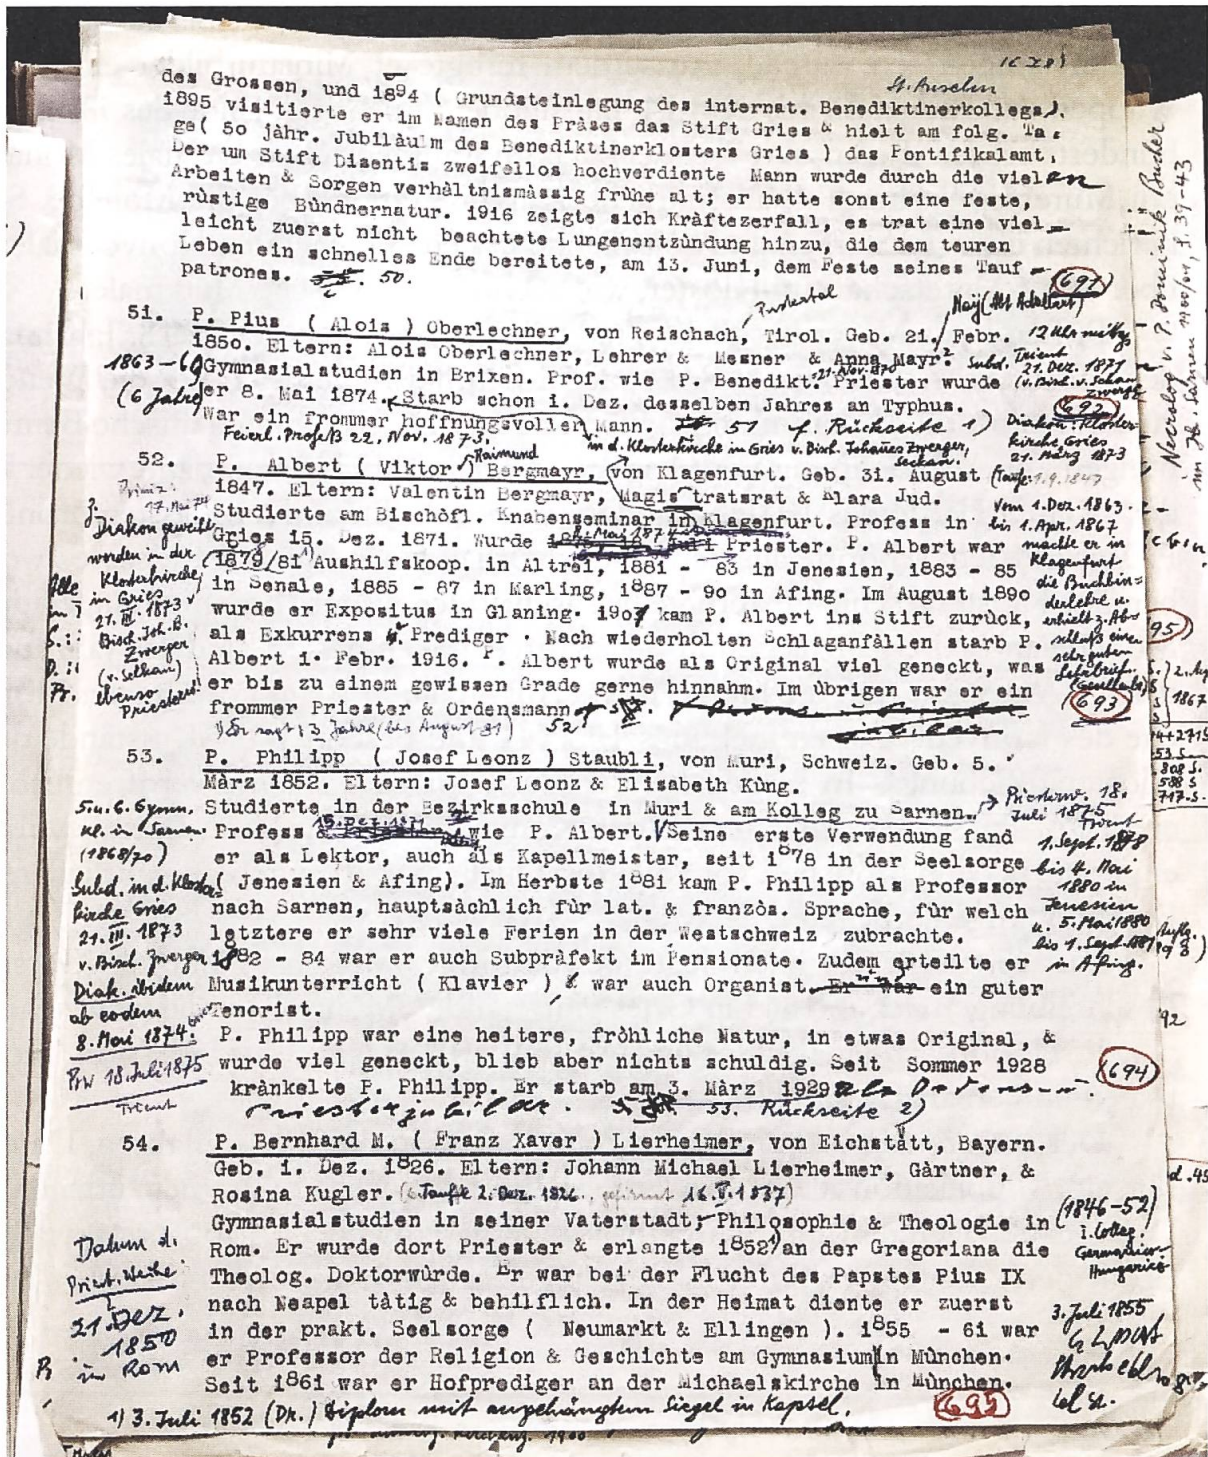 St. Anselm
des Grossen, und 1894 ( Grundsteinlegung des internat. Benediktinerkollegs).
1895 visitierte er im Namen des Präses das Stift Gries & hielt am folg. Ta=
ge( 50 jähr. Jubiläum des Benediktinerklosters Gries ) das Pontifikalamt.
Der um Stift Disentis zweifellos hochverdiente Mann wurde durch die vielen
Arbeiten & Sorgen verhältnismässig frühe alt; er hatte sonst eine feste,
rüstige Bündnernatur. 1916 zeigte sich Kräftezerfall, es trat eine viel=
leicht zuerst nicht beachtete Lungenentzündung hinzu, die dem teuren
Leben ein schnelles Ende bereitete, am 13. Juni, dem Feste seines Tauf =
patrones. 50.
691
Necrolog v. P. Dominik Bucher
im Jb. Sarnen 1900/01, S. 39-43
Pustertal
51. P. Pius ( Alois ) Oberlechner, von Reischach, Tirol. Geb. 21. Febr.
1850. Eltern: Alois Oberlechner, Lehrer & Mesner & Anna Mayr.
Gymnasialstudien in Brixen. Prof. wie P. Benedikt. Priester wurde
21. Nov. 1870
er 8. Mai 1874. Starb schon 1. Dez. desselben Jahres an Typhus.
War ein frommer hoffnungsvoller Mann. 51 Rückseite 1)
Feierl. Profeß 22. Nov. 1873.
in d. Klosterkirche in Gries v. Bisch. Johannes Zwerger,
Seckau.
1863-69
(6 Jahre)
Subd. Trient
21. Dez. 1871
692
Diakon: Kloster-
kirche Gries
21. März 1873
Raimund
52. P. Albert ( Viktor ) Bergmayr, von Klagenfurt. Geb. 31. August
(Taufe: 1.9.1847
1847. Eltern: Valentin Bergmayr, Magistratsrat & Klara Jud.
Studierte am Bischöfl. Knabenseminar in Klagenfurt. Profess in
Gries 15. Dez. 1871. Wurde 8. Mai 1874 Priester. P. Albert war
1879/81 1) Aushilfskoop. in Altrei, 1881 - 83 in Jenesien, 1883 - 85
in Senale, 1885 - 87 in Marling, 1887 - 90 in Afing. Im August 1890
wurde er Expositus in Glaning. 1907 kam P. Albert ins Stift zurück,
als Exkurrens & Prediger. Nach wiederholten Schlaganfällen starb P.
Albert 1. Febr. 1916. P. Albert wurde als Original viel geneckt, was
er bis zu einem gewissen Grade gerne hinnahm. Im übrigen war er ein
frommer Priester & Ordensmann.
1) Er sagt: 3 Jahre (bis August 81) 52
Primiz:
17. Mai 74
Diakon geweiht
worden in der
Klosterkirche
in Gries
21. III. 1873
Bisch. Joh. B.
Zwerger
(v. Seckau)
ebenso
Priester
vom 1. Dez. 1863
bis 1. Apr. 1867
machte er in
Klagenfurt
die Buchbin=
derlehre u.
erhielt z. Ab=
schluß einen
sehr guten
Lehrbrief.
693
53. P. Philipp ( Josef Leonz ) Staubli, von Muri, Schweiz. Geb. 5.
März 1852. Eltern: Josef Leonz & Elisabeth Küng.
Studierte in der Bezirksschule in Muri & am Kolleg zu Sarnen.
15. Dez. 1871
Profess & Priester wie P. Albert. Seine erste Verwendung fand
er als Lektor, auch als Kapellmeister, seit 1878 in der Seelsorge
( Jenesien & Afing). Im Herbste 1881 kam P. Philipp als Professor
nach Sarnen, hauptsächlich für lat. & französ. Sprache, für welch
letztere er sehr viele Ferien in der Westschweiz zubrachte.
1882 - 84 war er auch Subpräfekt im Pensionate. Zudem erteilte er
Musikunterricht ( Klavier ) & war auch Organist. Er war ein guter
Tenorist.
P. Philipp war eine heitere, fröhliche Natur, in etwas Original, &
wurde viel geneckt, blieb aber nichts schuldig. Seit Sommer 1928
kränkelte P. Philipp. Er starb am 3. März 1929 als Ordens- u.
Priesterjubilar. 53. Rückseite 2)
5. u. 6. Gymn.
Kl. in Sarnen.
(1868/70)
Subd. in d. Kloster
kirche Gries
21. III. 1873
v. Bisch. Zwerger
Diak. ibidem
ab eodem
8. Mai 1874.
Prw 18. Juli 1875
Trient
Priesterw. 18.
Juli 1875
Trient
1. Sept. 1878
bis 4. Mai
1880 in
Jenesien
u. 5. Mai 1880
bis 1. Sept. 1881
in Afing.
694
54. P. Bernhard M. ( Franz Xaver ) Lierheimer, von Eichstätt, Bayern.
Geb. 1. Dez. 1826. Eltern: Johann Michael Lierheimer, Gärtner, &
Rosina Kugler. (Taufe 2. Dez. 1826, gefirmt 16. V. 1837)
Gymnasialstudien in seiner Vaterstadt; Philosophie & Theologie in
Rom. Er wurde dort Priester & erlangte 1852 1) an der Gregoriana die
Theolog. Doktorwürde. Er war bei der Flucht des Papstes Pius IX
nach Neapel tätig & behilflich. In der Heimat diente er zuerst
in der prakt. Seelsorge ( Neumarkt & Ellingen ). 1855 - 61 war
er Professor der Religion & Geschichte am Gymnasium in München.
Seit 1861 war er Hofprediger an der Michaelskirche in München.
1) 3. Juli 1852 (Dr.) Diplom mit angehängtem Siegel in Kapsel.
Datum d.
Priest. Weihe
21. Dez.
1850
in Rom
(1846-52)
i. Colleg.
Germanico-
Hungarico
3. Juli 1855
695